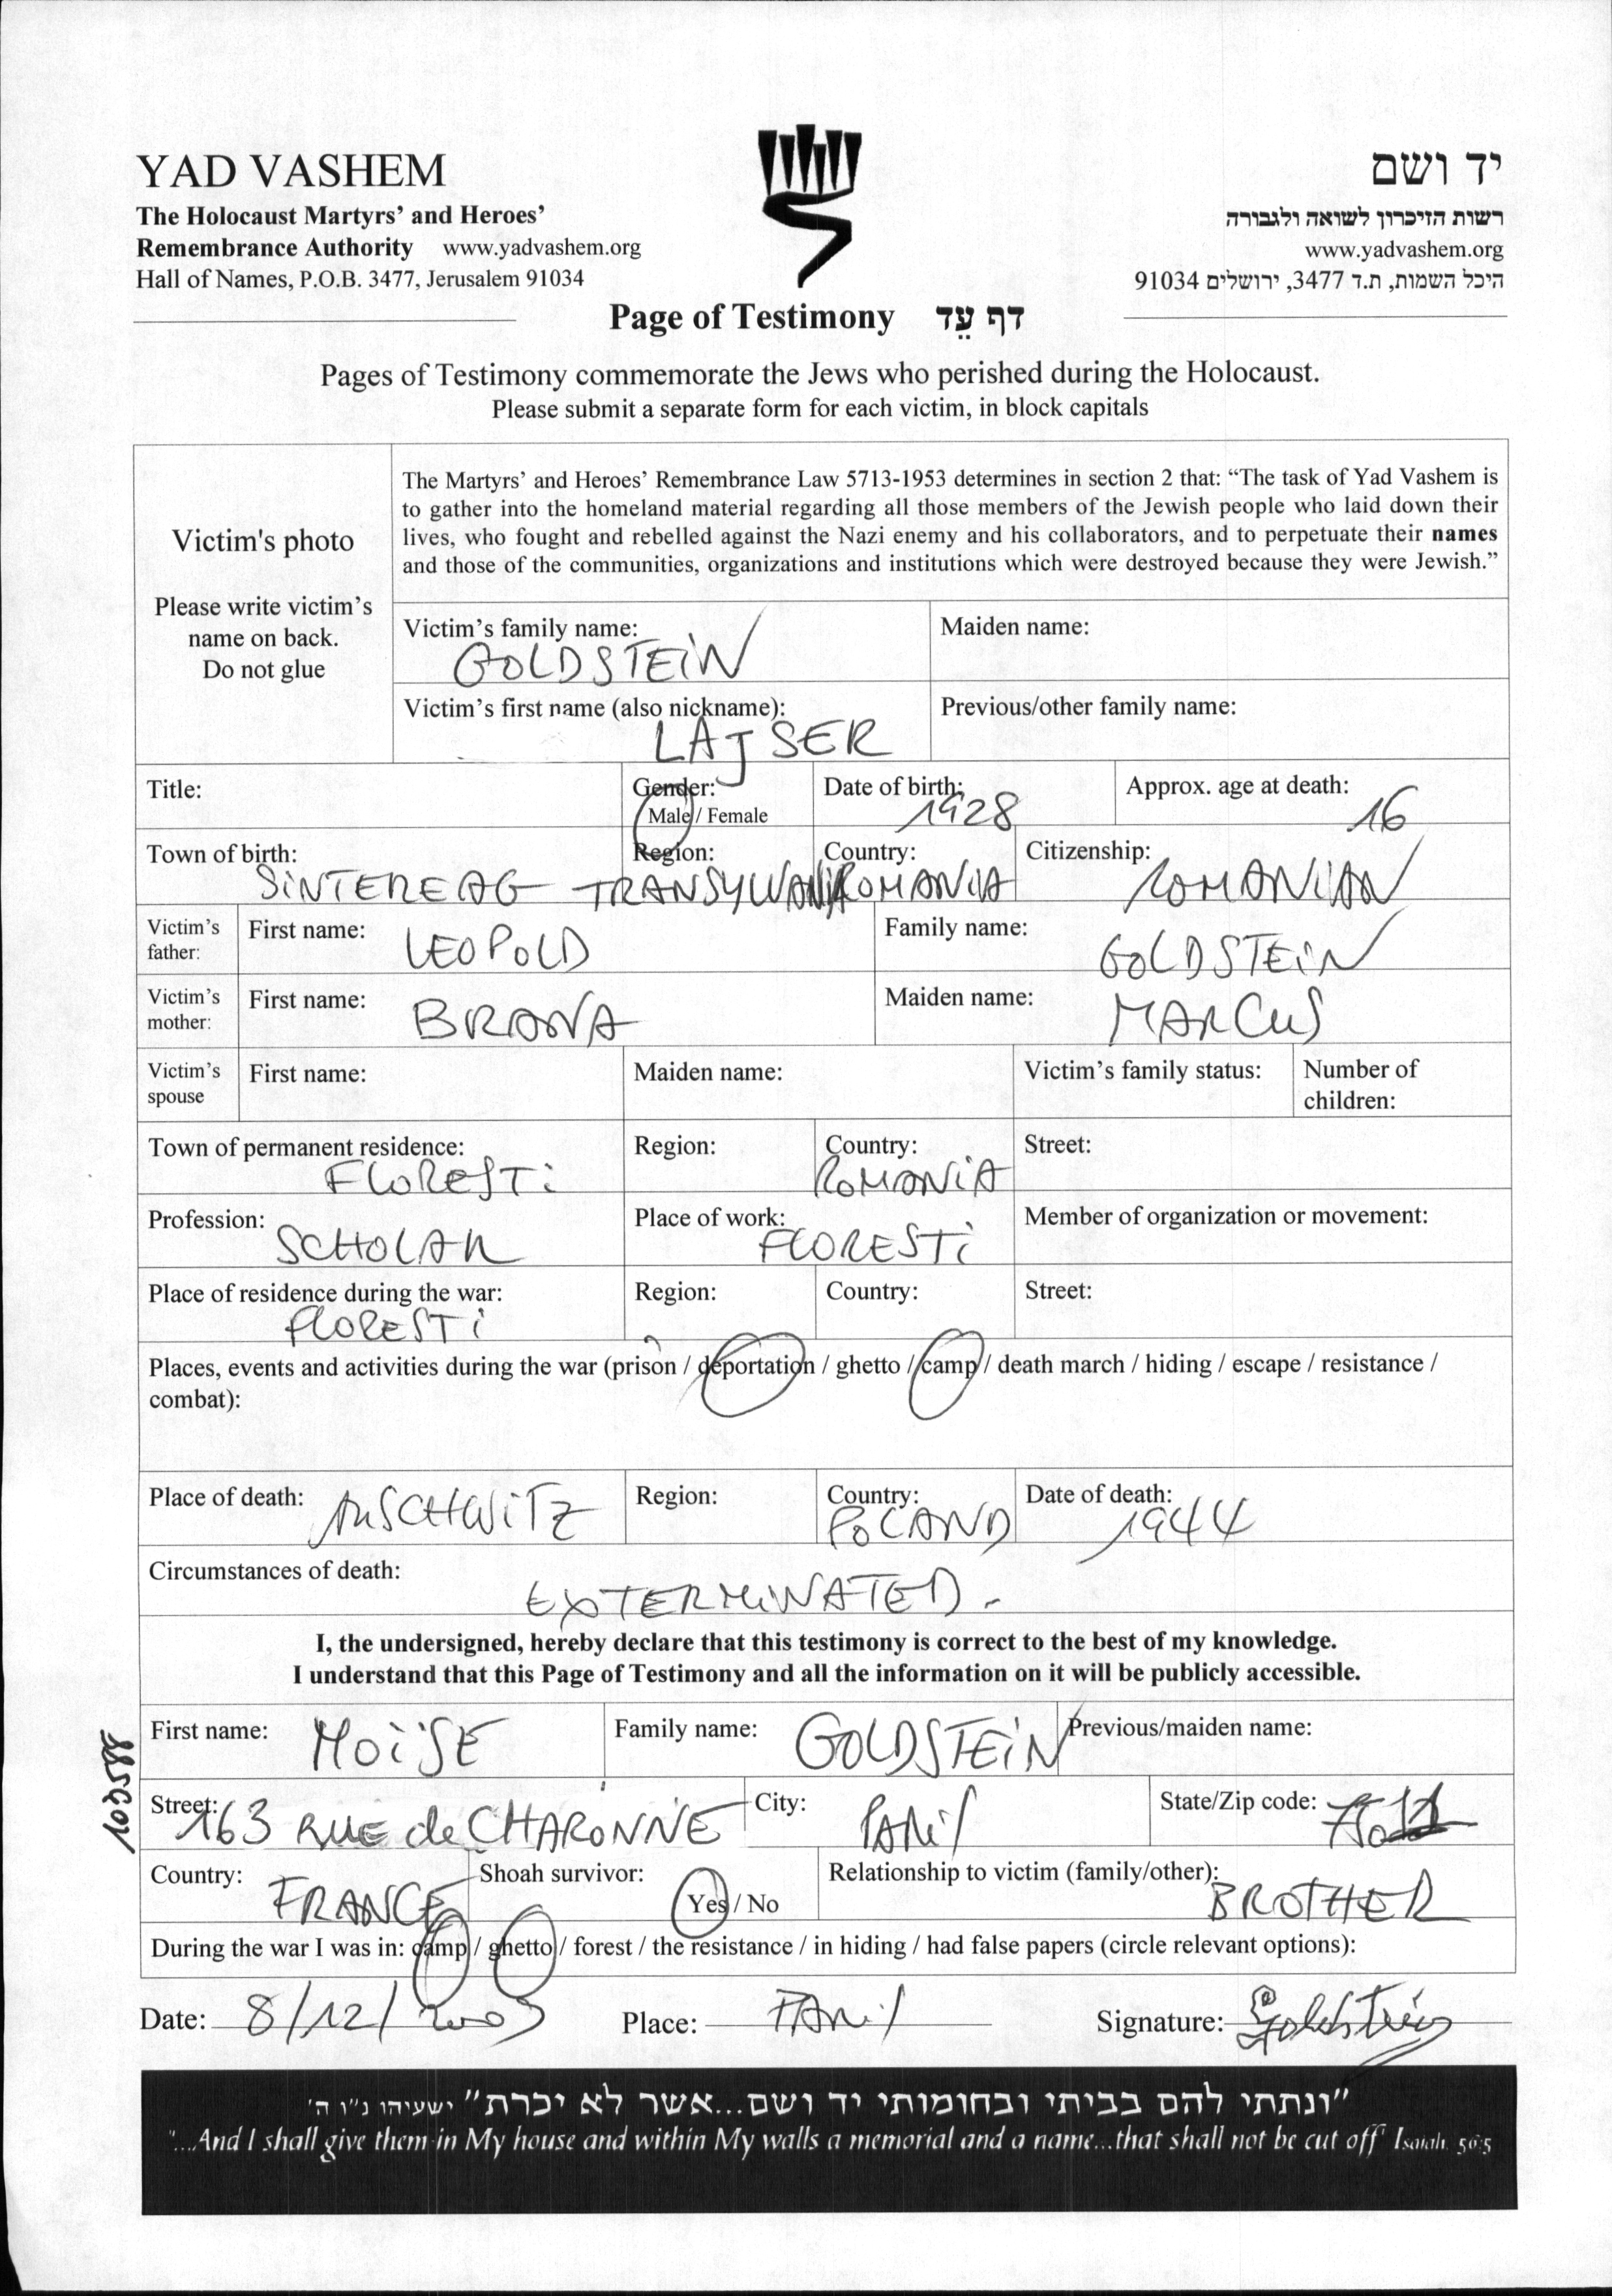 YAD VASHEM
The Holocaust Martyrs' and Heroes'
Remembrance Authority www.yadvashem.org
Hall of Names, P.O.B. 3477, Jerusalem 91034
יד ושם
רשות הזיכרון לשואה ולגבורה
www.yadvashem.org
היכל השמות, ת.ד 3477, ירושלים 91034
Page of Testimony דף עֵד
Pages of Testimony commemorate the Jews who perished during the Holocaust.
Please submit a separate form for each victim, in block capitals
Victim's photo
Please write victim's
name on back.
Do not glue
The Martyrs' and Heroes' Remembrance Law 5713-1953 determines in section 2 that: "The task of Yad Vashem is
to gather into the homeland material regarding all those members of the Jewish people who laid down their
lives, who fought and rebelled against the Nazi enemy and his collaborators, and to perpetuate their names
and those of the communities, organizations and institutions which were destroyed because they were Jewish."
Victim's family name: GOLDSTEIN
Maiden name:
Victim's first name (also nickname): LAJSER
Previous/other family name:
Title:
Gender: Male / Female
Date of birth: 1928
Approx. age at death: 16
Town of birth: SINTEREAG
Region: TRANSYLVANIA
Country: ROMANIA
Citizenship: ROMANIAN
Victim's father:
First name: LEOPOLD
Family name: GOLDSTEIN
Victim's mother:
First name: BRANA
Maiden name: MARCUS
Victim's spouse
First name:
Maiden name:
Victim's family status:
Number of children:
Town of permanent residence: FLORESTI
Region:
Country: ROMANIA
Street:
Profession: SCHOLAR
Place of work: FLORESTI
Member of organization or movement:
Place of residence during the war: FLORESTI
Region:
Country:
Street:
Places, events and activities during the war (prison / deportation / ghetto / camp / death march / hiding / escape / resistance /
combat):
Place of death: AUSCHWITZ
Region:
Country: POLAND
Date of death: 1944
Circumstances of death: EXTERMINATED.
I, the undersigned, hereby declare that this testimony is correct to the best of my knowledge.
I understand that this Page of Testimony and all the information on it will be publicly accessible.
First name: MOÏSE
Family name: GOLDSTEIN
Previous/maiden name:
Street: 163 RUE de CHARONNE
City: PARIS
State/Zip code:
Country: FRANCE
Shoah survivor: Yes / No
Relationship to victim (family/other): BROTHER
During the war I was in: camp / ghetto / forest / the resistance / in hiding / had false papers (circle relevant options):
Date: 8/12/2003
Place: PARIS
Signature: Goldstein
103588
"ונתתי להם בביתי ובחומותי יד ושם...אשר לא יכרת" ישעיהו נ"ו ה'
"...And I shall give them in My house and within My walls a memorial and a name...that shall not be cut off" Isaiah. 56:5